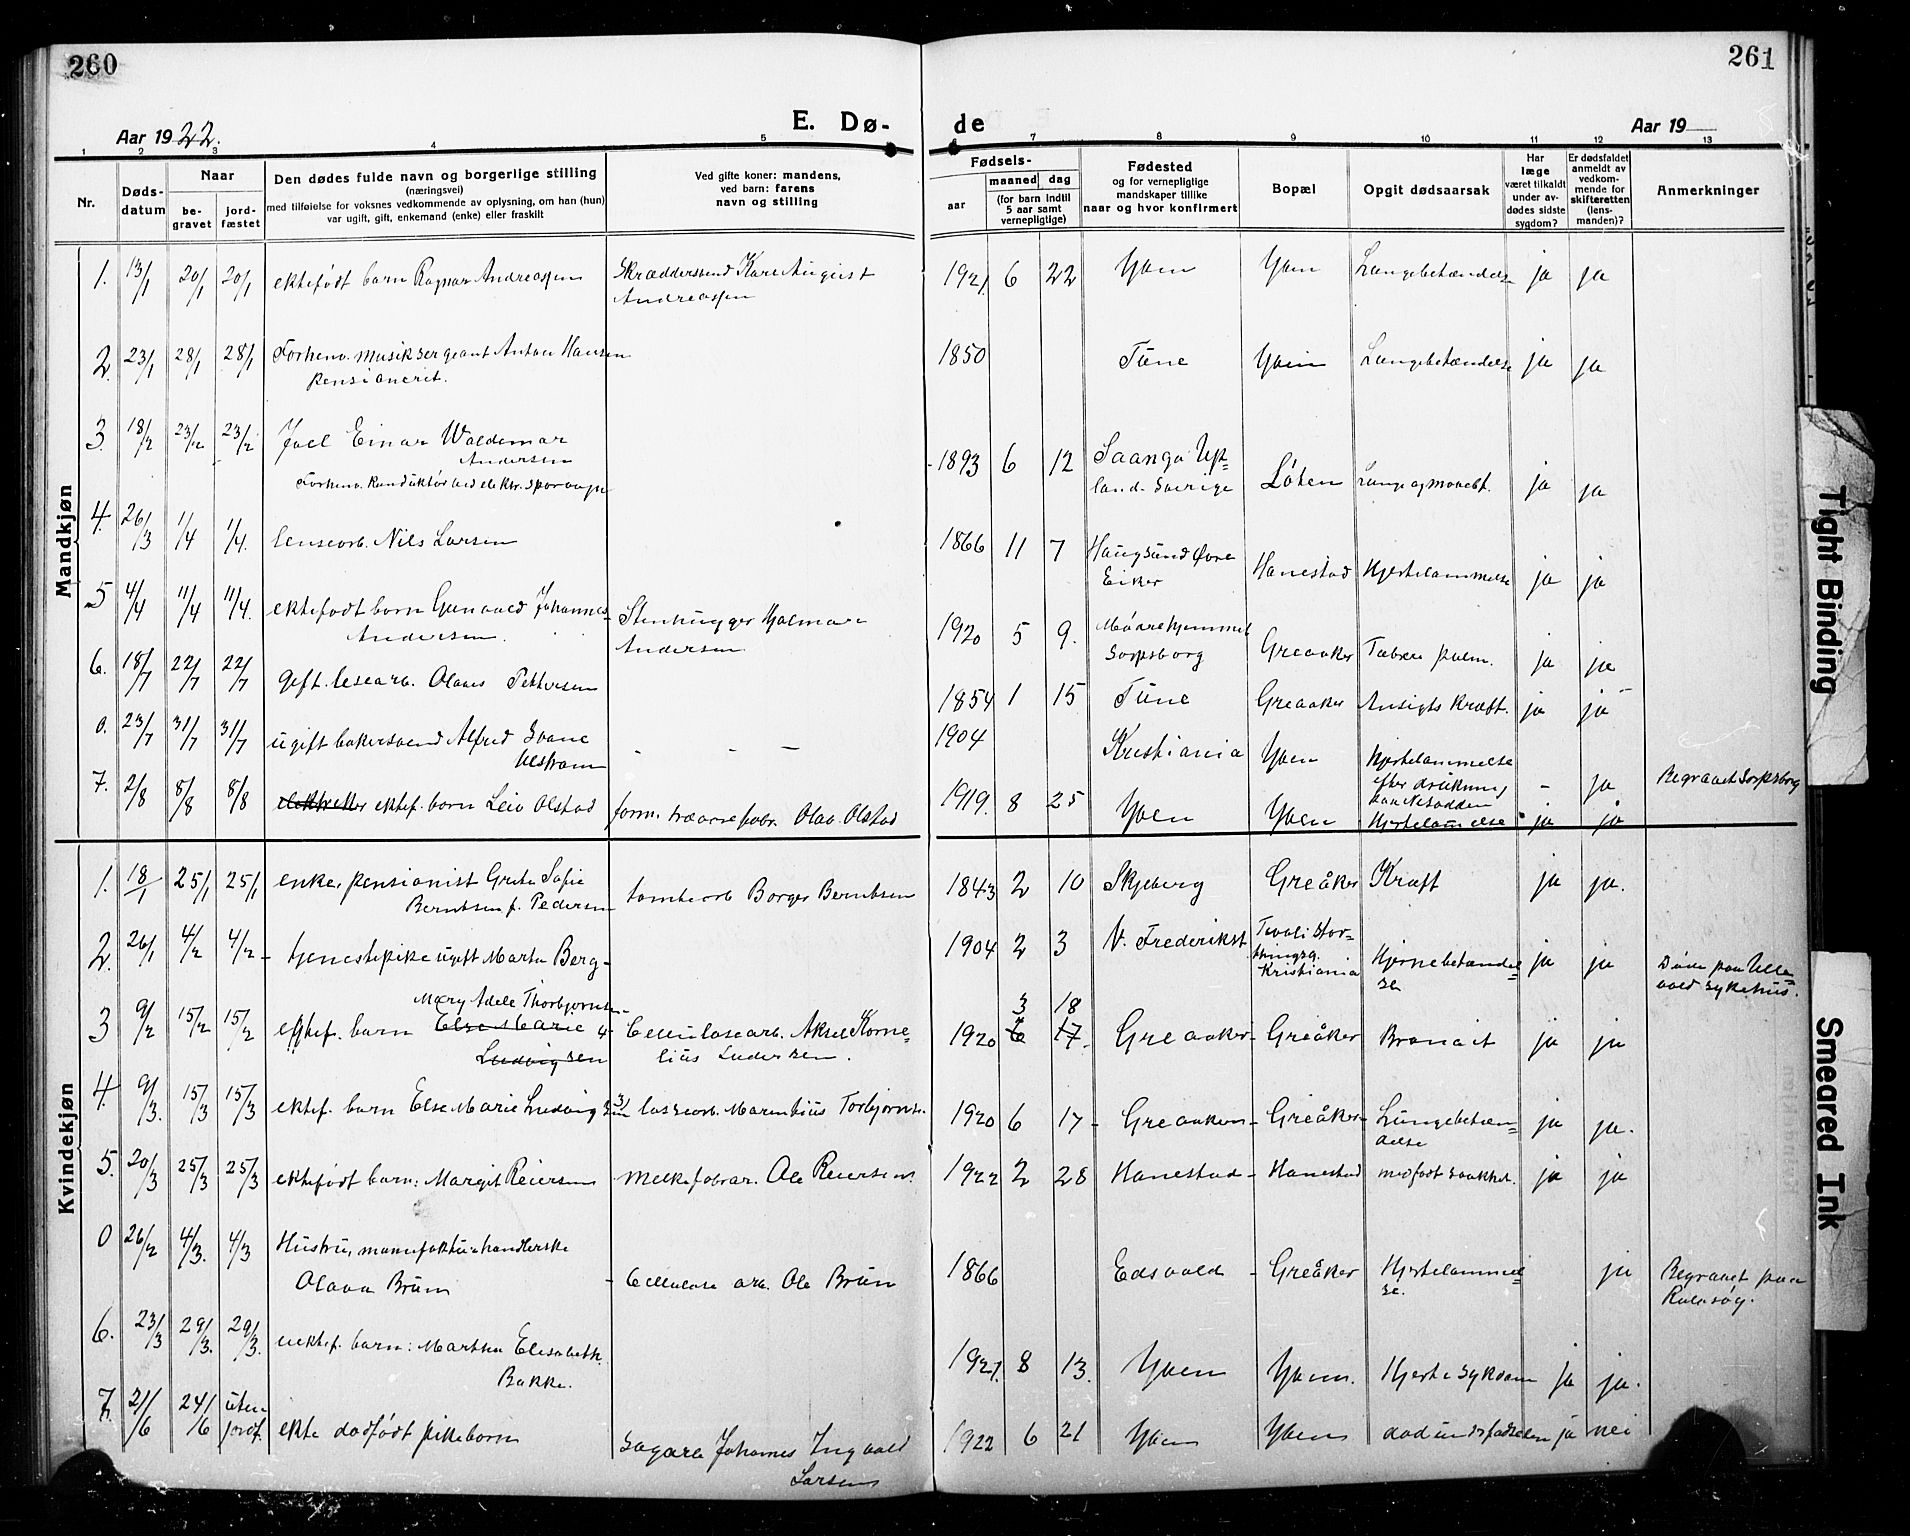 260
261
E. Dø-
de
Aar 1922.
Aar 19
1 2 3 4 5 6 7 8 9 10 11 12 13
Nr.
Døds-
datum
Naar
be-
gravet
jord-
fæstet
Den dødes fulde navn og borgerlige stilling
(næringsvei)
med tilføielse for voksnes vedkommende av oplysning, om han (hun)
var ugift, gift, enkemand (enke) eller fraskilt
Ved gifte koner: mandens,
ved barn: farens
navn og stilling
Fødsels-
aar
maaned
dag
(for barn indtil
5 aar samt
vernepligtige)
Fødested
og for vernepligtige
mandskaper tillike
naar og hvor konfirmert
Bopæl
Opgit dødsaarsak
Har
læge
været tilkaldt
under av-
dødes sidste
sygdom?
Er dødsfaldet
anmeldt av
vedkom-
mende for
skifteretten
(lens-
manden)?
Anmerkninger
Mandkjøn
1. 13/1 20/1 20/1 ektefødt barn Ragnar Andreassen
Skræddersvend Karl August
Andreassen
1921. 6 22 Yven Yven Lungebetændelse ja ja
2. 23/1 28/1 28/1 Forhenv. musiksergeant Anton Hansen
pensioneret.
1850 Tune Yven Lungebetændelse ja ja
3. 18/2 23/2 23/2 Joel Einar Waldemar
Andersen
Forhenv. konduktør ved elektr. sporvogn
1893 6 12 Saanga Up-
land. Sverige Løten ja ja
4. 26/3 1/4 1/4. Nils Larsen
1866 11 7 Haugsund Øvre
Eiker Hanestad Hjertelammelse ja ja
5 4/4 11/4 11/4. ektefødt barn Gunvald Johannes
Andersen.
Stenhugger Hjalmar
Andersen
1920 5 9. Mødrehjemmet
Sarpsborg Greaaker ja ja
6. 18/7 22/7 22/7 gift. Olaves Pettersen
1854 1 15 Tune Greaaker Ansigts kræft. ja ja
0. 23/7 31/7 31/7 ugift bakersvend Alfred Svane
- - -
1904 Kristiania Yven Hjertelammelse
efter drukning
- ja Begravet Sarpsborg
7. 2/8 8/8 8/8 ektef. barn Leiv Olstad
form. trævarefabr. Olav Olstad
1919. 8 25 Yven Yven Hjertelamelse ja ja
Kvindekjøn
1. 18/1 25/1 25/1 enke, pensionist Grete Sofie
Berntsen f. Pedersen
tomtearb Borger Berntsen
1843 2 10 Skjeberg Greåker Kræft ja ja.
2. 26/1 4/2 4/2 - tjenestepike ugift Marta Berg -
1904 2 3 V. Frederikst Tivoli Stor-
tingsg.
Kristiania Hjernebetændel-
se ja ja Døde paa Ulle-
vold sykehus.
3 9/2 15/2 15/2 ektef. barn Mary Adele Thorbjørnsen
Else Marie
Ludvigsen
Cellulosearb. Aksel Korne-
lius
1920 3 18
6 17. Greaaker Greåker ja ja
4. 9/3. 15/3 15/3 ektef. barn Else Marie Ludvigsen
Torbjørns.
1920 6 17 - Greaaker - Greåker - Lungebetæn-
delse ja ja.
5. 20/3 25/3 25/3 ektefødt barn: Margit Reiersen
Melkefabrar. Ole Reiersen.
1922 2 28 Hanestad - Hanestad medfødt svakhet. ja ja
0 26/2 4/3. 4/3 Hustru, manufakturhandlerske
Olava Brun
- Cellulose arb. Ole Brun
1866 Edsvold - Greåker Hjertelammel-
se. ja Begravet paa
Rolvsøy.
6. 23/3 29/3. 29/3. uektef. barn: Martha Elisabeth
Bakke.
1921. 8 13. Yven Yven. Hjerte sykdom ja ja.
7. 21/6 24/6 uten
jordf. ekte dødfødt pikebarn
Sagarb Johannes Ingvald
Larsen
1922 6 21 Yven Yven død und. fødselen ja nei
Tight Binding
Smeared Ink